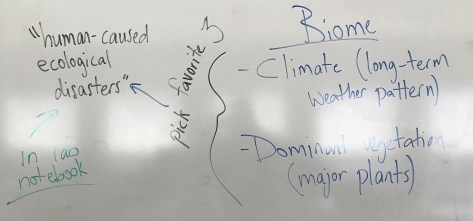 "human-caused
ecological
disasters"
In lab
notebook
pick favorite 3
Biome
- Climate (long-term
weather pattern)
- Dominant vegetation
(major plants)